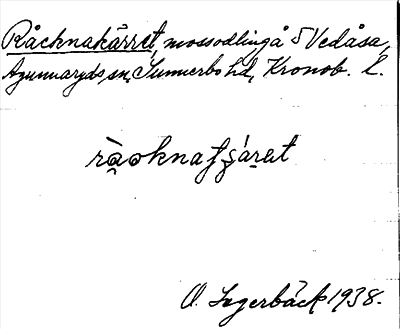 Råcknakärret, mossodling å S Vedåsa,
Agunnaryds sn, Sunnerbo hd, Kronob. l.
O. Lagerbäck 1938.